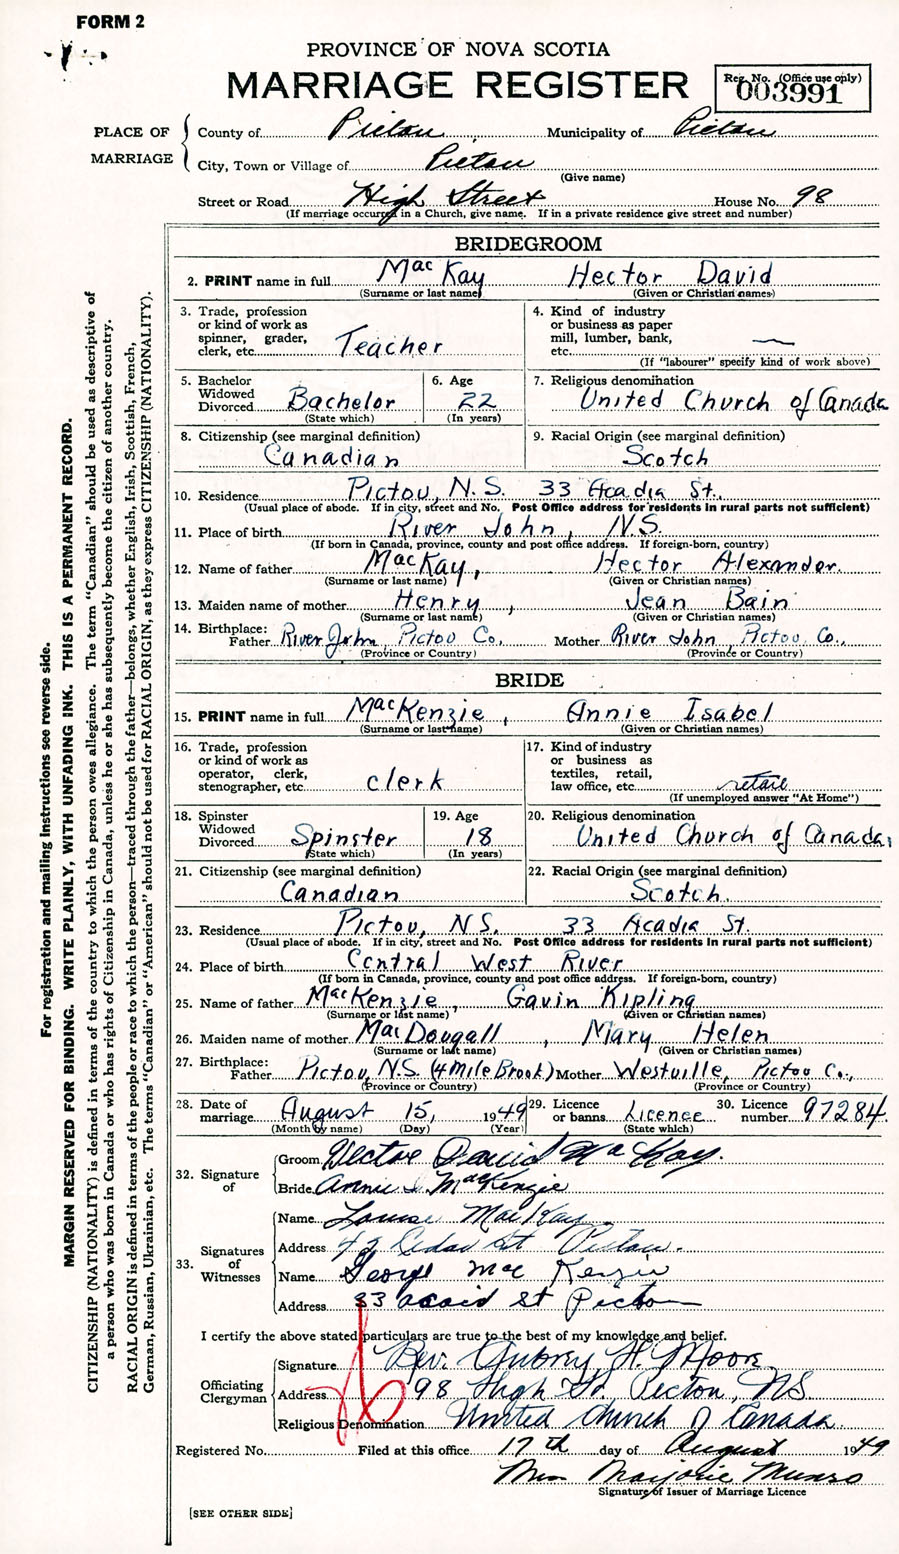 FORM 2
PROVINCE OF NOVA SCOTIA
MARRIAGE REGISTER
Reg. No. (Office use only)
003991
PLACE OF MARRIAGE
County of Pictou Municipality of Pictou
City, Town or Village of Pictou
(Give name)
Street or Road High Street House No. 98
(If marriage occurred in a Church, give name. If in a private residence give street and number)
BRIDEGROOM
2. PRINT name in full MacKay Hector David
(Surname or last name) (Given or Christian names)
3. Trade, profession
or kind of work as
spinner, grader,
clerk, etc. Teacher
4. Kind of industry
or business as paper
mill, lumber, bank,
etc. —
(If "labourer" specify kind of work above)
5. Bachelor
Widowed
Divorced Bachelor
(State which)
6. Age
22
(In years)
7. Religious denomination
United Church of Canada
8. Citizenship (see marginal definition)
Canadian
9. Racial Origin (see marginal definition)
Scotch
10. Residence Pictou, N.S. 33 Acadia St.,
(Usual place of abode. If in city, street and No. Post Office address for residents in rural parts not sufficient)
11. Place of birth River John, N.S.
(If born in Canada, province, county and post office address. If foreign-born, country)
12. Name of father MacKay, Hector Alexander.
(Surname or last name) (Given or Christian names)
13. Maiden name of mother Henry, Jean Bain
(Surname or last name) (Given or Christian names)
14. Birthplace:
Father River John, Pictou Co., Mother River John, Pictou Co.,
(Province or Country) (Province or Country)
BRIDE
15. PRINT name in full MacKenzie, Annie Isabel
(Surname or last name) (Given or Christian names)
16. Trade, profession
or kind of work as
operator, clerk,
stenographer, etc. clerk
17. Kind of industry
or business as
textiles, retail,
law office, etc. retail
(If unemployed answer "At Home")
18. Spinster
Widowed
Divorced Spinster
(State which)
19. Age
18
(In years)
20. Religious denomination
United Church of Canada,
21. Citizenship (see marginal definition)
Canadian
22. Racial Origin (see marginal definition)
Scotch.
23. Residence Pictou, N.S. 33 Acadia St.
(Usual place of abode. If in city, street and No. Post Office address for residents in rural parts not sufficient)
24. Place of birth Central West River
(If born in Canada, province, county and post office address. If foreign-born, country)
25. Name of father MacKenzie, Gavin Kipling
(Surname or last name) (Given or Christian names)
26. Maiden name of mother MacDougall, Mary Helen
(Surname or last name) (Given or Christian names)
27. Birthplace:
Father Pictou, N.S. (4 Mile Brook) Mother Westville, Pictou Co.,
(Province or Country) (Province or Country)
28. Date of
marriage August 15, 1949
(Month by name) (Day) (Year)
29. Licence
or banns Licence
(State which)
30. Licence
number 97284
32. Signature of
Groom Hector David MacKay.
Bride Annie I. MacKenzie
33. Signatures of Witnesses
Name Louise MacKay
Address 42 Cedar St Pictou.
Name George MacKenzie
Address 33 acaid St Pictou
I certify the above stated particulars are true to the best of my knowledge and belief.
Officiating Clergyman
Signature Rev. Aubrey H. Moore
Address 98 High St. Pictou, NS
Religious Denomination United Church of Canada.
Registered No. Filed at this office 17th day of August 1949
Mrs Marjorie Munro
Signature of Issuer of Marriage Licence
[SEE OTHER SIDE]
For registration and mailing instructions see reverse side.
MARGIN RESERVED FOR BINDING. WRITE PLAINLY, WITH UNFADING INK. THIS IS A PERMANENT RECORD.
CITIZENSHIP (NATIONALITY) is defined in terms of the country to which the person owes allegiance. The term "Canadian" should be used as descriptive of
a person who was born in Canada or who has rights of Citizenship in Canada, unless he or she has subsequently become the citizen of another country.
RACIAL ORIGIN is defined in terms of the people or race to which the person—traced through the father—belongs, whether English, Irish, Scottish, French,
German, Russian, Ukrainian, etc. The terms "Canadian" or "American" should not be used for RACIAL ORIGIN, as they express CITIZENSHIP (NATIONALITY).